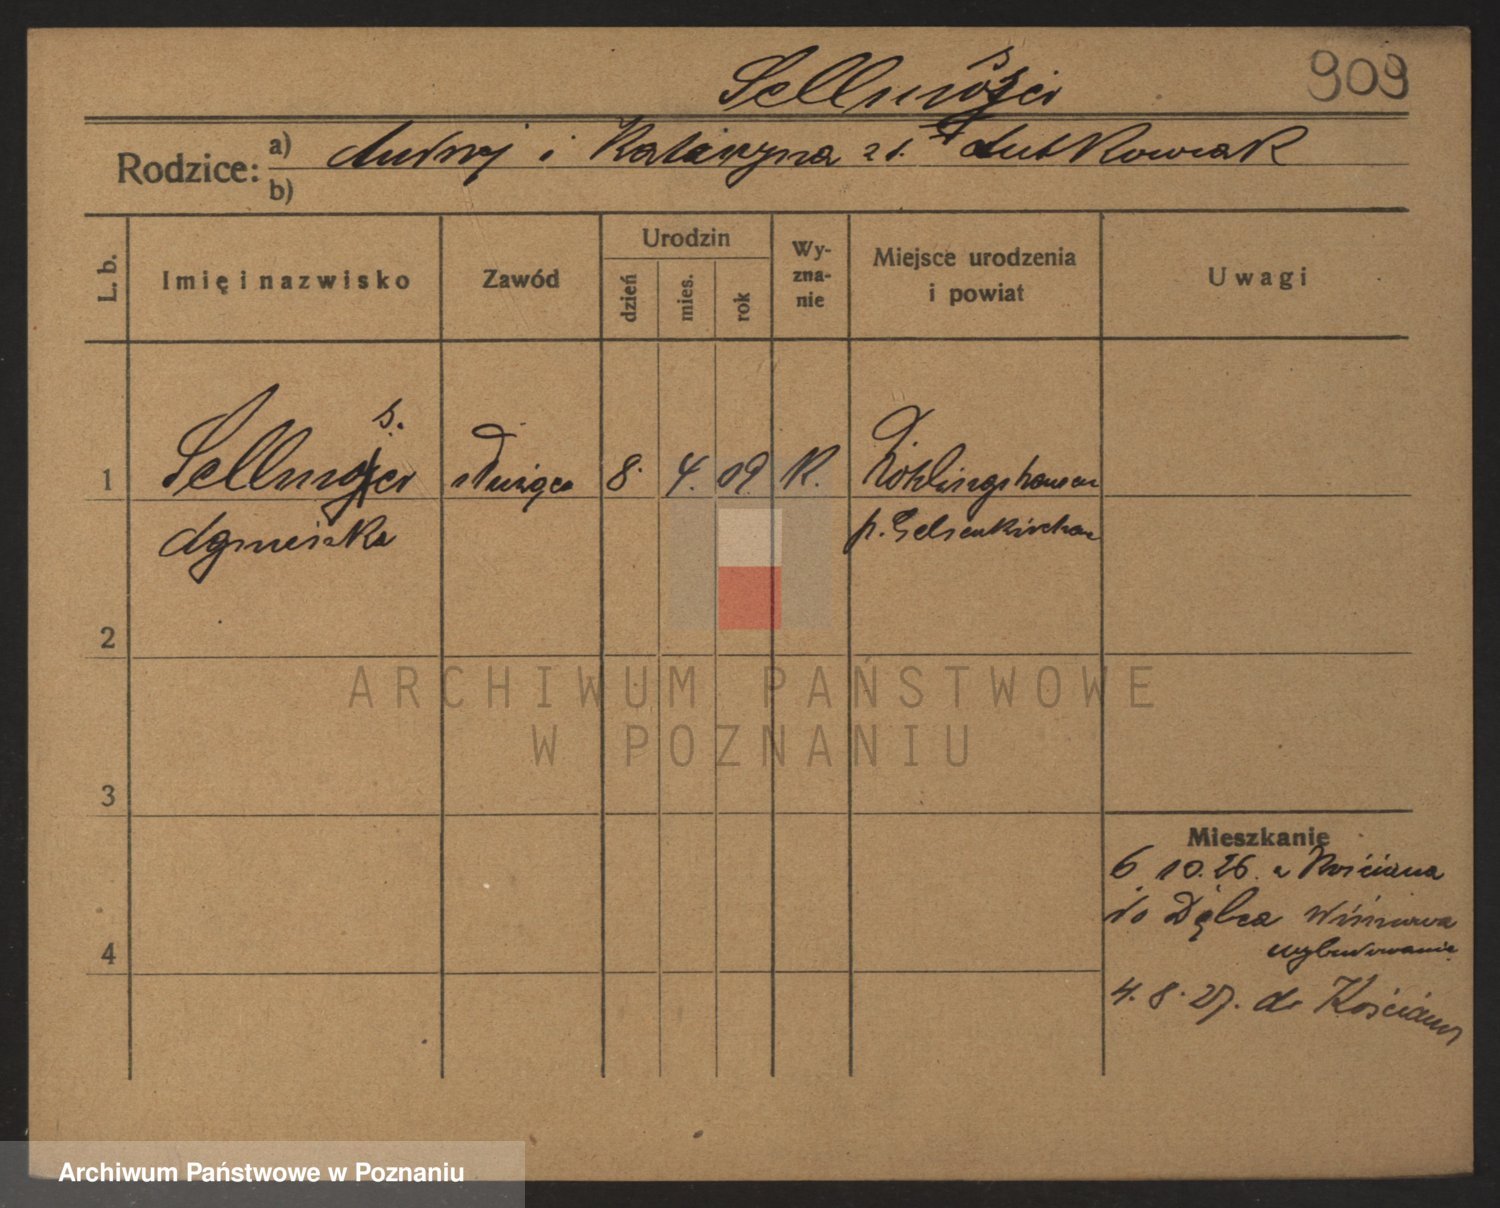 909
Rodzice: a) Andrzej i Katarzyna z d. Antkowiak
b)
L. b. Imię i nazwisko Zawód Urodzin dzień mies. rok Wyznanie Miejsce urodzenia i powiat Uwagi
1 służąca 8. 4. 09 K. Röhlinghausen
Agnieszka p. Gelsenkirchen
2
ARCHIWUM PAŃSTWOWE
W POZNANIU
3
Mieszkanie
6 10.26. z Kościana
do Dębca Wiśniowa
wybudowanie
4
4. 8. 27. do Kościana
Archiwum Państwowe w Poznaniu